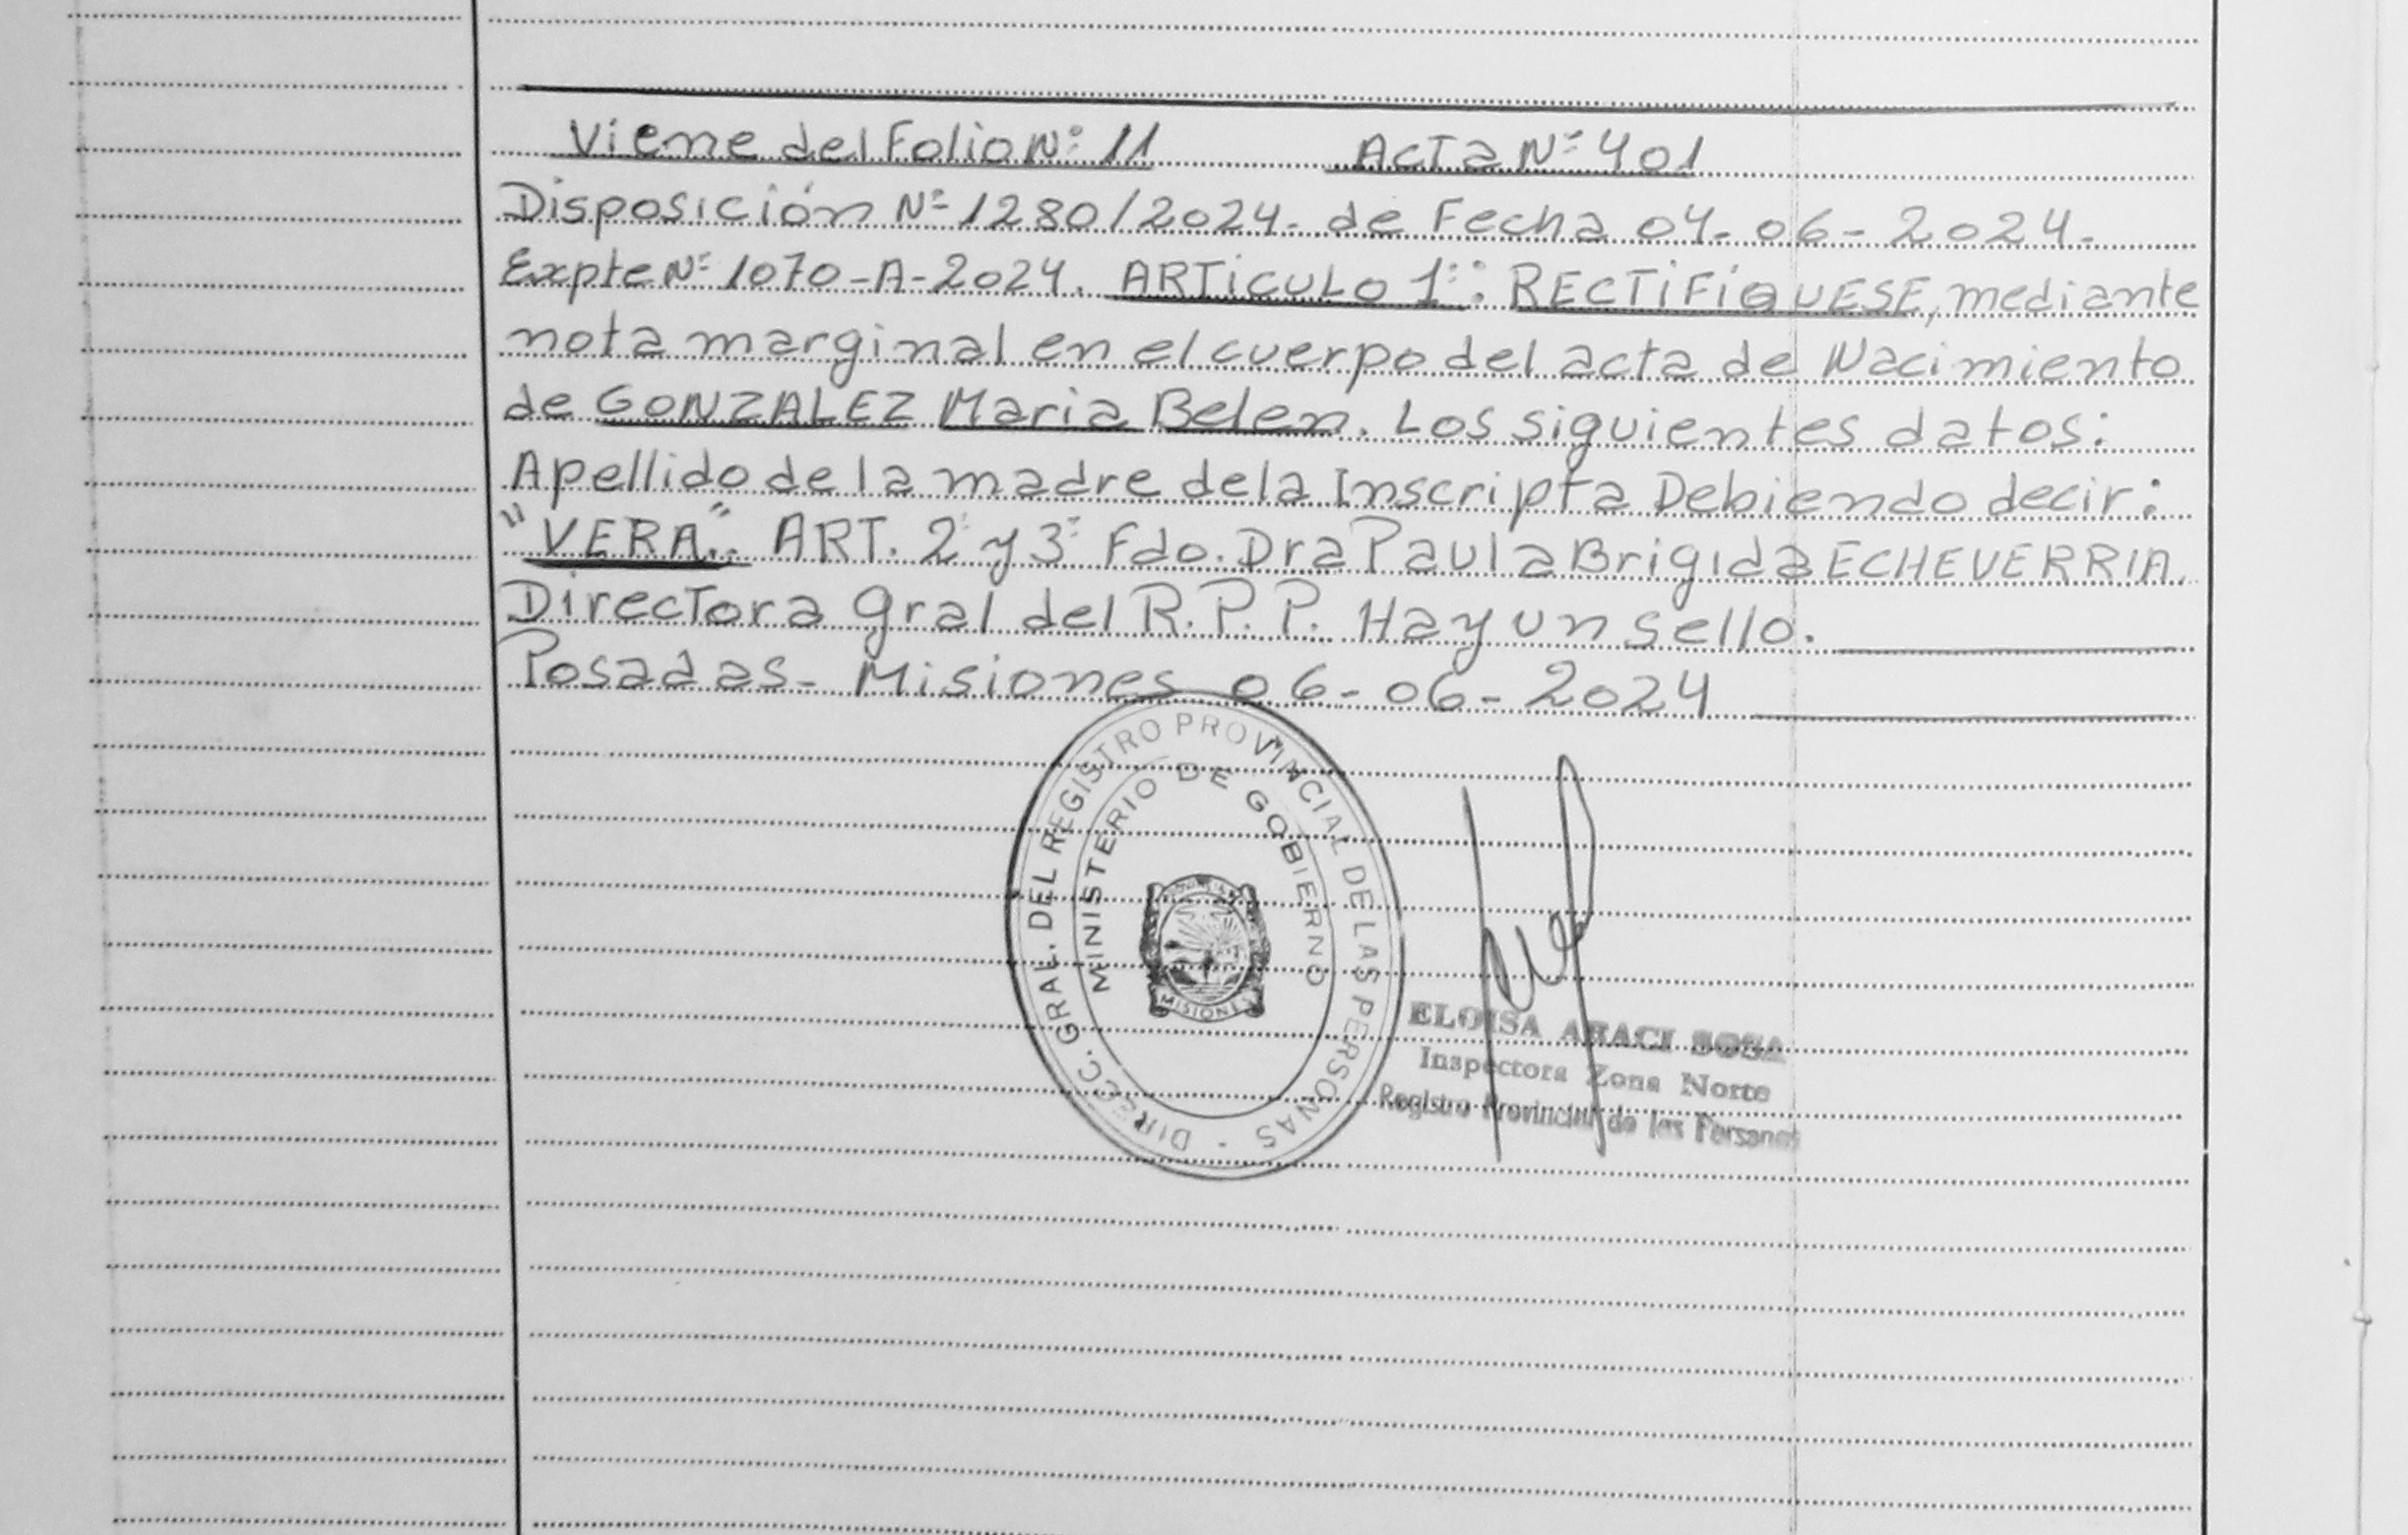 Viene del Folio Nº 11 Acta Nº 401
Disposición Nº 1280/2024. de Fecha 04-06-2024.
Expte Nº 1070-A-2024. ARTiCULO 1º: RECTiFíQUESE, mediante
nota marginal en el cuerpo del acta de Nacimiento
de GONZALEZ Maria Belen. Los siguientes datos:
Apellido de la madre de la Inscripta Debiendo decir:
"VERA". ART. 2º y 3º Fdo. Dra Paula Brigida ECHEVERRIA.
Directora Gral del R.P.P. Hay un sello.
Posadas- Misiones 06-06-2024
DIRECC. GRAL. DEL REGISTRO PROVINCIAL DE LAS PERSONAS -
MINISTERIO DE GOBIERNO
MISIONES
ELOISA ARACI SOSA
Inspectora Zona Norte
Registro Provincial de las Personas